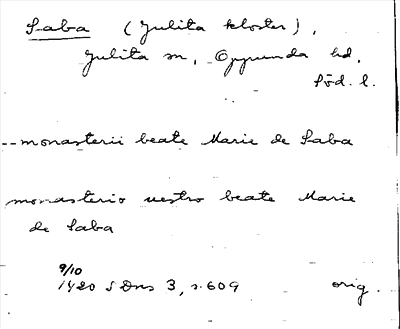 Saba (Julita kloster),
Julita sn, Oppunda hd,
Söd. l.
--monasterii beate Marie de Saba
monasterio nestro beate Marie
de Saba
9/10
1420 SDns 3, s. 609 orig.